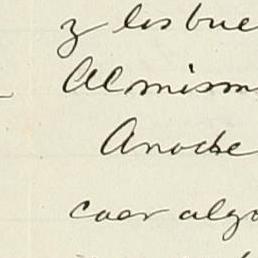 y los bue
Al mism
Anoche
caer algo